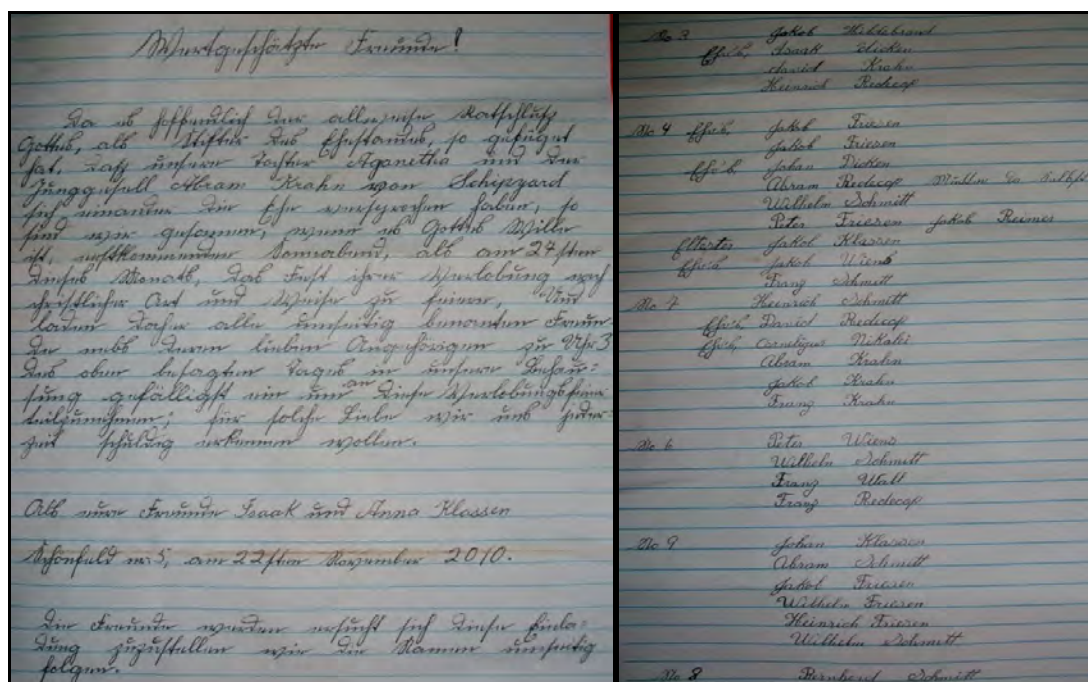 Wertgeschätzte Freunde!
Da es hoffendlich der allweise Ratschluß
Gottes, als Stifter des Ehestandes, so gefüget
hat, daß unsere Tochter Aganetha und der
Junggesell Abram Krahn von
sich einander die Ehe versprochen haben, so
sind wir gesonnen, wenn es Gottes Wille
ist, nestkommenden Sonnabend, als am 27sten
dieses Monats, das Fest ihrer Verlobung nach
christlicher Art und Weise zu feiern, Und
laden daher alle umseitig benanten Freun-
de nebs deren lieben Angehörigen zu Uhr 3
des oben besagten Tages in unsere Behau=
sung gefälligst ein um an diese Verlobungsfeier
teilzunehmen; für solche Liebe wir uns jeder=
zeit schuldig erkennen wollen.
Als eure Freunde Isaak und Anna Klassen
Schönfeld nr. 5, am 22sten November 2010.
Die Freunde werden ersucht sich diese Einla=
dung zuzustellen wie die Namen umseitig
folgen.
No 3 Jakob Hildebrand
Ehrb. Isaak Dicken
David Krahn
Heinrich Redecop
No 4 Ehrb. Jakob Friesen
Jakob Friesen
Ehrb. Johan Dicken
Abram Redecop
Wilhelm Schmitt
Peter Friesen Jakob Reimer
Eltester Jakob Klassen
Ehrb Jakob Wiens
Franz Schmitt
No 7 Heinrich Schmitt
Ehrb. David Redecop
Ehrb. Cornelius
Abram Krahn
Jakob Krahn
Franz Krahn
No 6 Peter Wiens
Wilhelm Schmitt
Franz Wall
Franz Redecop
No 9 Johan Klassen
Abram Schmitt
Jakob Friesen
Wilhelm Friesen
Heinrich Friesen
Wilhelm Schmitt
No 8 Bernhard Schmitt